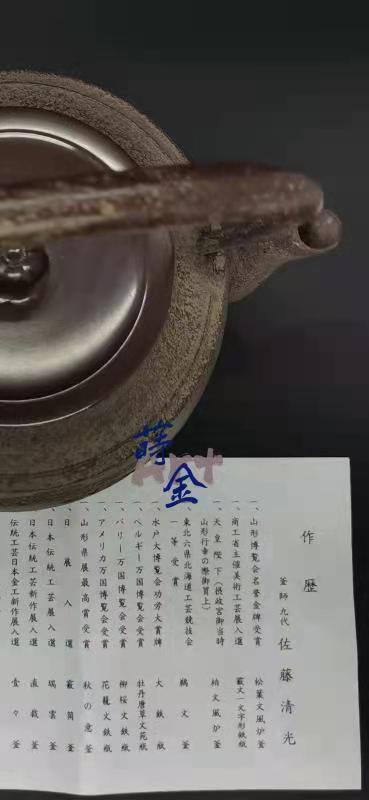 蒔金
Art
作歴
釜師九代 佐藤清光
一、山形博覧会名誉金牌受賞 松葉文風炉釜
一、商工省主催美術工芸展入選 霰文一文字形鉄瓶
一、天皇陛下(摂政宮御当時
山形行幸の際御買上) 柏文風炉釜
一、東北六県北海道工芸競技会
一等受賞 鶴文釜
一、水戸大博覧会功労大賞牌 大鉄瓶
一、ベルギー万国博覧会受賞 牡丹唐草文花瓶
一、パリー万国博覧会受賞 柳桜文鉄瓶
一、アメリカ万国博覧会受賞 花籠文鉄瓶
一、山形県展最高賞受賞 秋の意釜
一、日展入選 霰筒釜
一、日本伝統工芸展入選 瑞雲釜
日本伝統工芸新作展入選 直裁釜
伝統工芸日本金工新作展入選 壹々釜